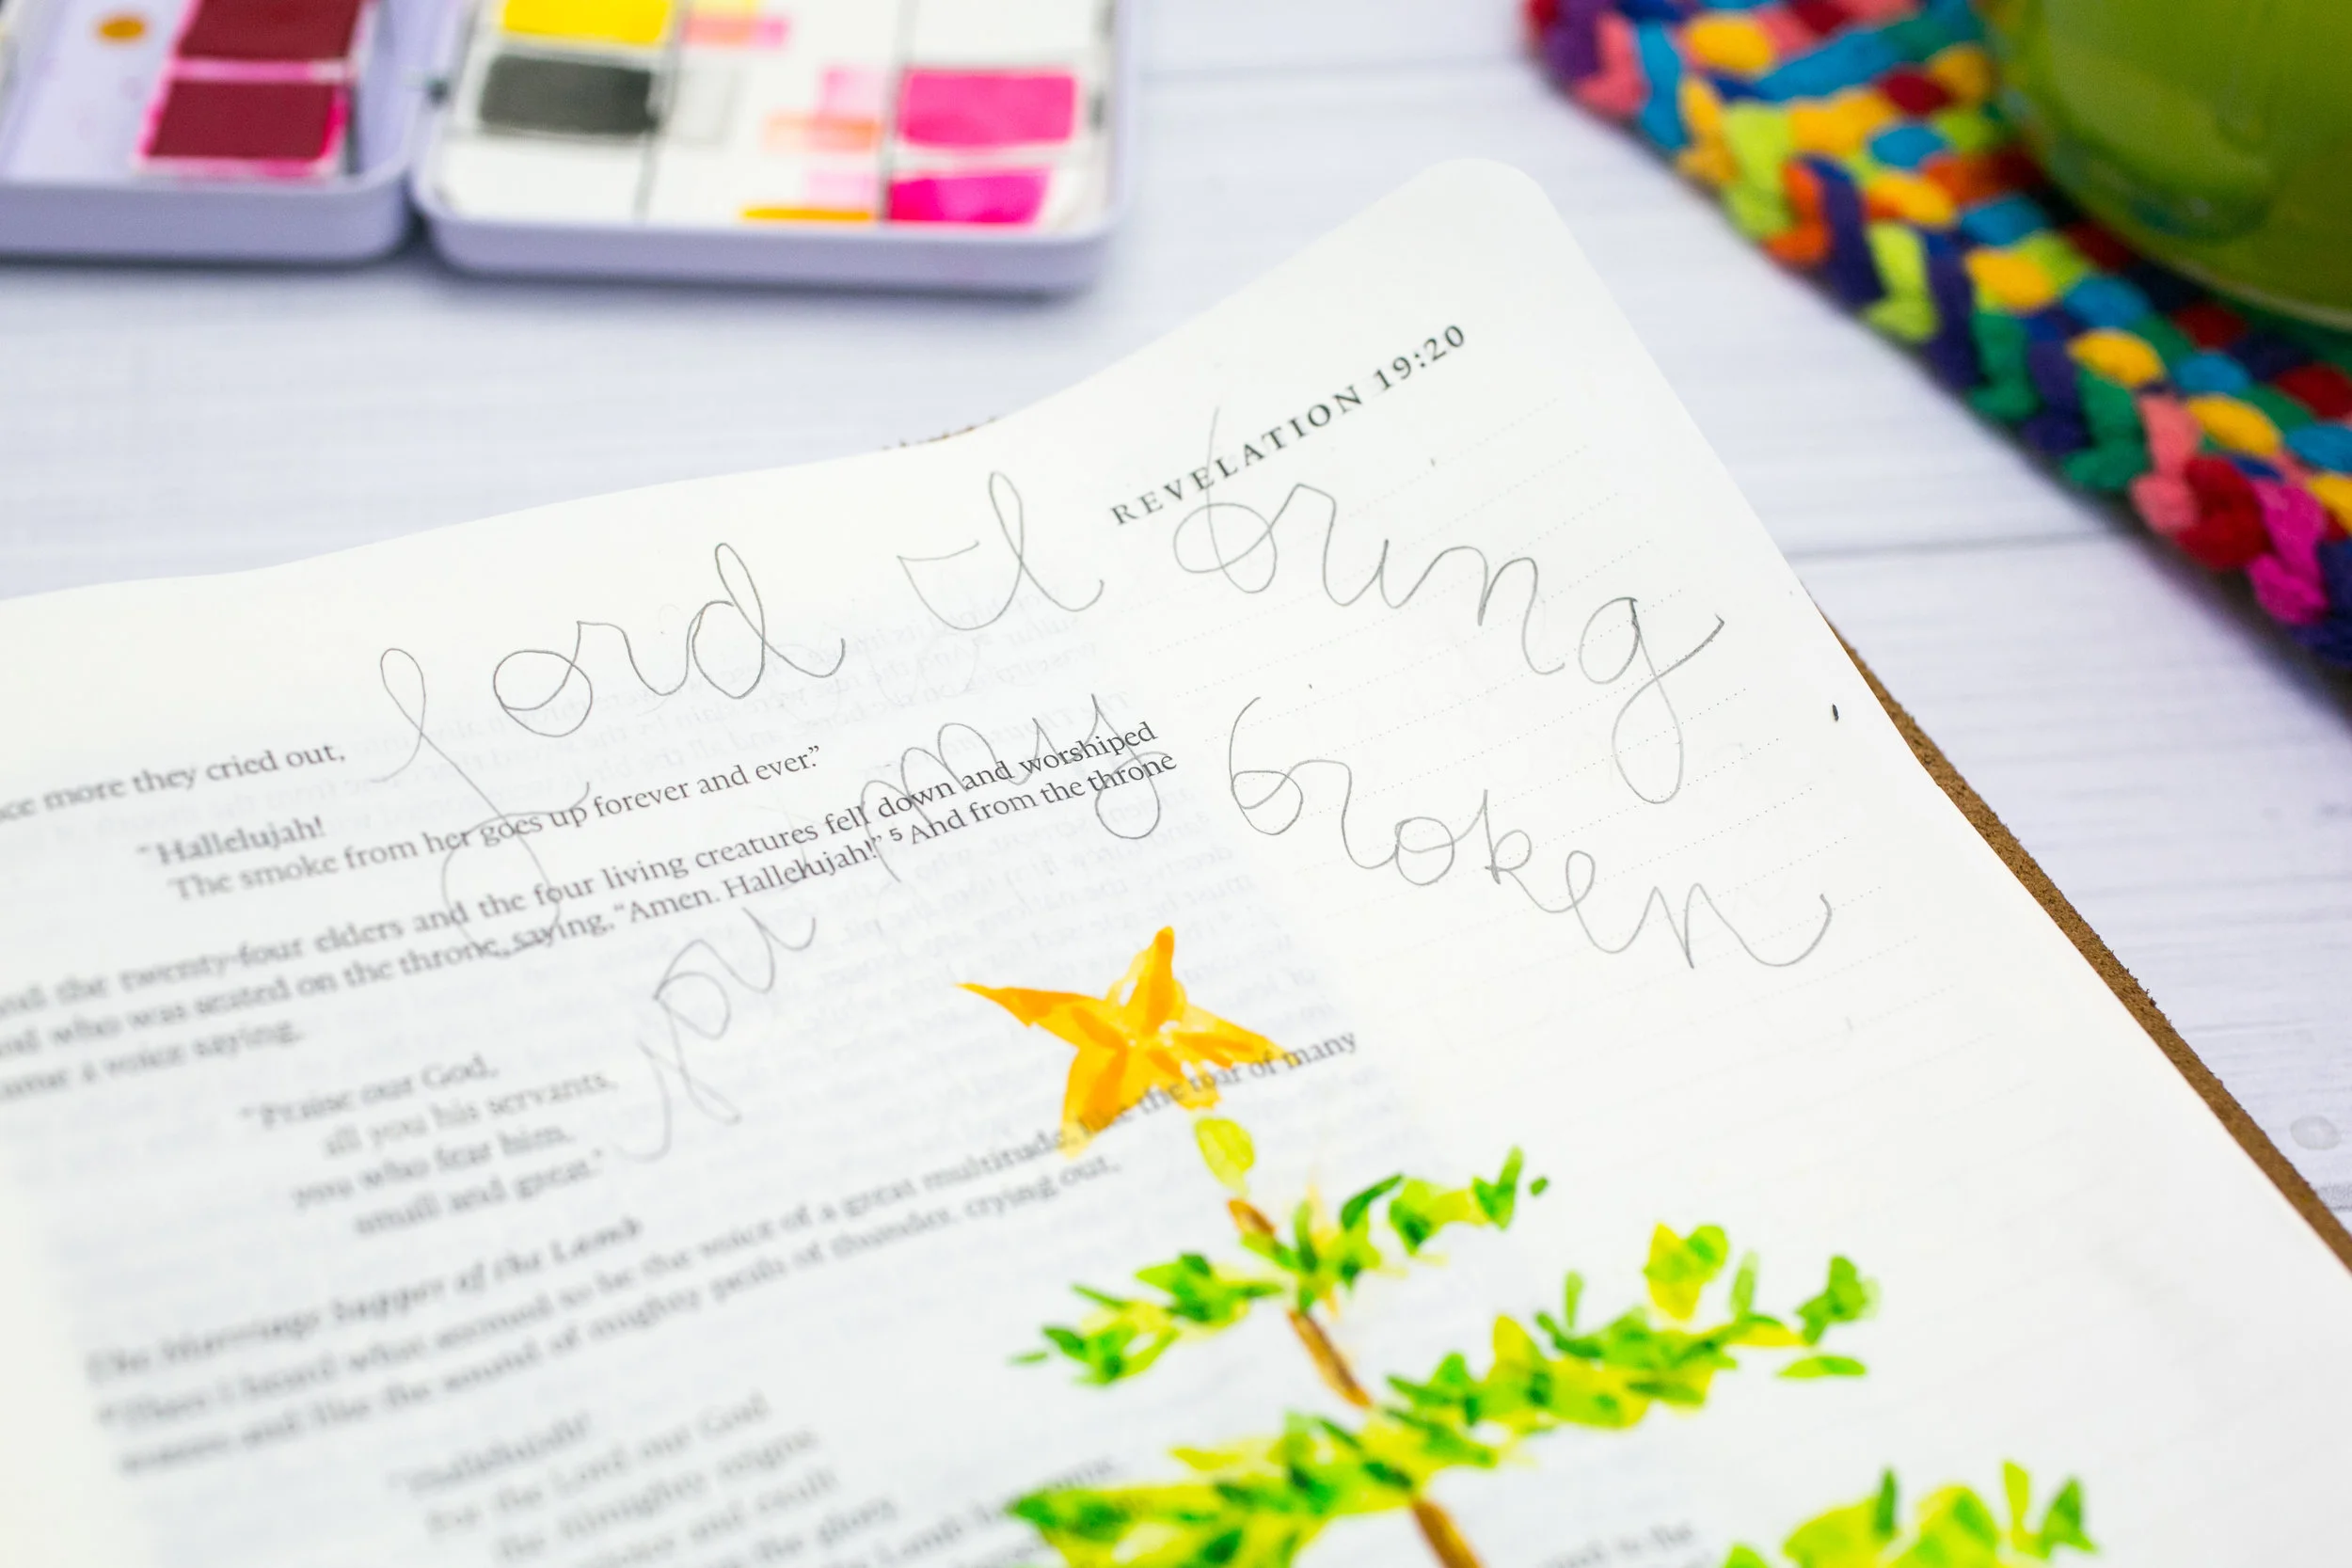 REVELATION 19:20
Lord I bring
you my broken
ce more they cried out,
"Hallelujah!
The smoke from her goes up forever and ever."
and the twenty-four elders and the four living creatures fell down and worshiped
who was seated on the throne, saying, "Amen. Hallelujah!" 5 And from the throne
came a voice saying,
"Praise our God,
all you his servants,
you who fear him,
small and great."
The Marriage Supper of the Lamb
Then I heard what seemed to be the voice of a great multitude, like the roar of many
waters and like the sound of mighty peals of thunder, crying out,
"Hallelujah!
For the Lord our God
the Almighty reigns.
and exult
the glory
the Lamb